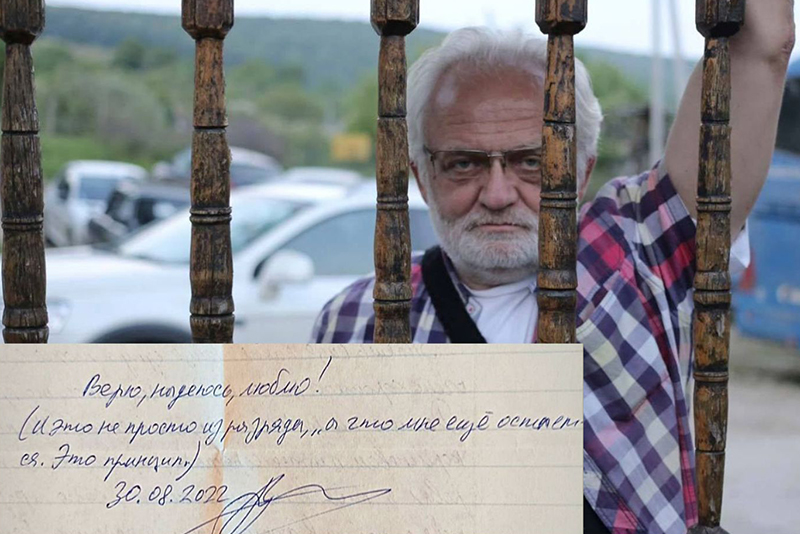 Верю, надеюсь, люблю!
(И это не просто из разряда „а что мне ещё остает-
ся. Это принцип.)
30.08.2022